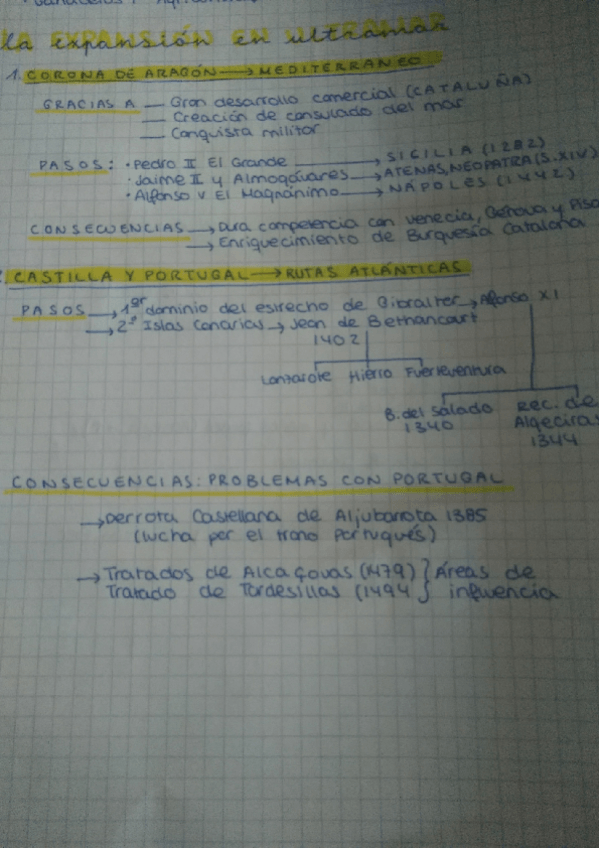 LA EXPANSIÓN EN ULTRAMAR
1. CORONA DE ARAGÓN → MEDITERRANEO
GRACIAS A — Gran desarrollo comercial (CATALUÑA)
— Creación de consulado del mar
— Conquista militar
PASOS: · Pedro II El Grande → SICILIA (1282)
· Jaime II y Almogávares → ATENAS, NEOPATRIA (S. XIV)
· Alfonso V El Magnánimo → NÁPOLES (1442)
CONSECUENCIAS → Dura competencia con Venecia, Génova y Pisa
→ Enriquecimiento de Burguesía Catalana
CASTILLA Y PORTUGAL → RUTAS ATLÁNTICAS
PASOS → 1er dominio del estrecho de Gibralter → Alfonso XI
→ 2º Islas Canarias → Jean de Bethancourt
1402
Lanzarote Hierro Fuerteventura
B. del Salado 1340
Rec. de Algeciras 1344
CONSECUENCIAS: PROBLEMAS CON PORTUGAL
→ Derrota Castellana de Aljubarrota 1385
(lucha por el trono Portugués)
→ Tratados de Alcaçovas (1479) } Áreas de
Tratado de Tordesillas (1494 } influencia